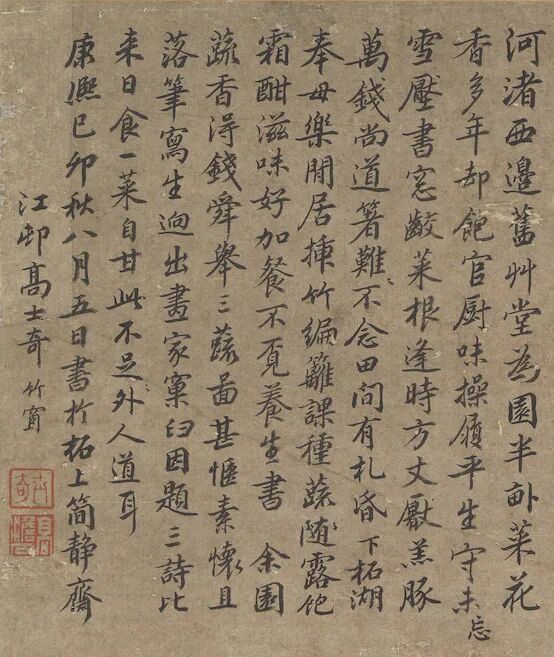 河渚西邊舊艸堂為園半畝菜花
香多年却飽官厨味操履平生守未忘
雪壓書窓齩菜根逢時方丈厭羔豚
萬錢尚道箸難不念田間有札昏下柘湖
奉母樂閒居揷竹編籬課種蔬随露飽
霜酣滋味好加餐不覔養生書 余園
蔬香淂錢舜舉三蔬啚甚愜素懷且
落筆寫生逈出畫家窠臼因題三詩比
来日食一菜自甘此不足外人道耳
康熙己卯秋八月五日書於柘上簡静齋
江邨高士奇竹窗
士奇